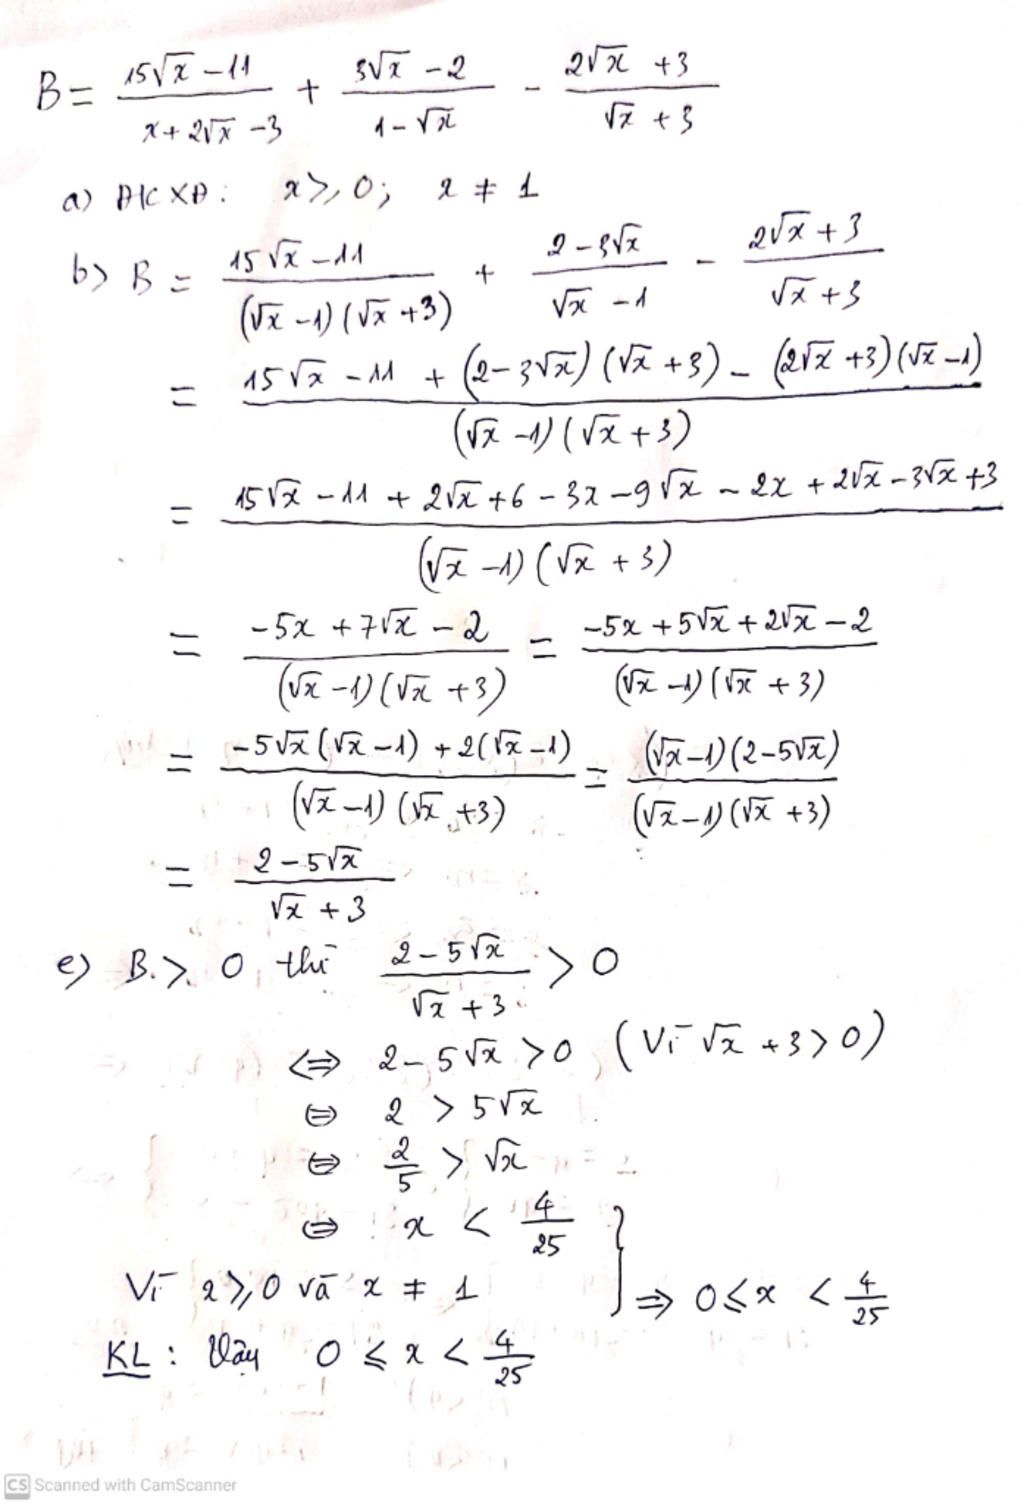 B = (15√x − 11)/(x + 2√x − 3) + (3√x − 2)/(1 − √x) − (2√x + 3)/(√x + 3)
a) ĐKXĐ: x ≥ 0; x ≠ 1
b) B = (15√x − 11)/((√x − 1)(√x + 3)) + (2 − 3√x)/(√x − 1) − (2√x + 3)/(√x + 3)
= (15√x − 11 + (2 − 3√x)(√x + 3) − (2√x + 3)(√x − 1))/((√x − 1)(√x + 3))
= (15√x − 11 + 2√x + 6 − 3x − 9√x − 2x + 2√x − 3√x + 3)/((√x − 1)(√x + 3))
= (−5x + 7√x − 2)/((√x − 1)(√x + 3)) = (−5x + 5√x + 2√x − 2)/((√x − 1)(√x + 3))
= (−5√x(√x − 1) + 2(√x − 1))/((√x − 1)(√x + 3)) = ((√x − 1)(2 − 5√x))/((√x − 1)(√x + 3))
= (2 − 5√x)/(√x + 3)
e) B > 0 thì (2 − 5√x)/(√x + 3) > 0
⇔ 2 − 5√x > 0 (Vì √x + 3 > 0)
⇔ 2 > 5√x
⇔ 2/5 > √x
⇔ x < 4/25
Vì x ≥ 0 và x ≠ 1 } ⇒ 0 ≤ x < 4/25
KL: Vậy 0 ≤ x < 4/25
CS Scanned with CamScanner